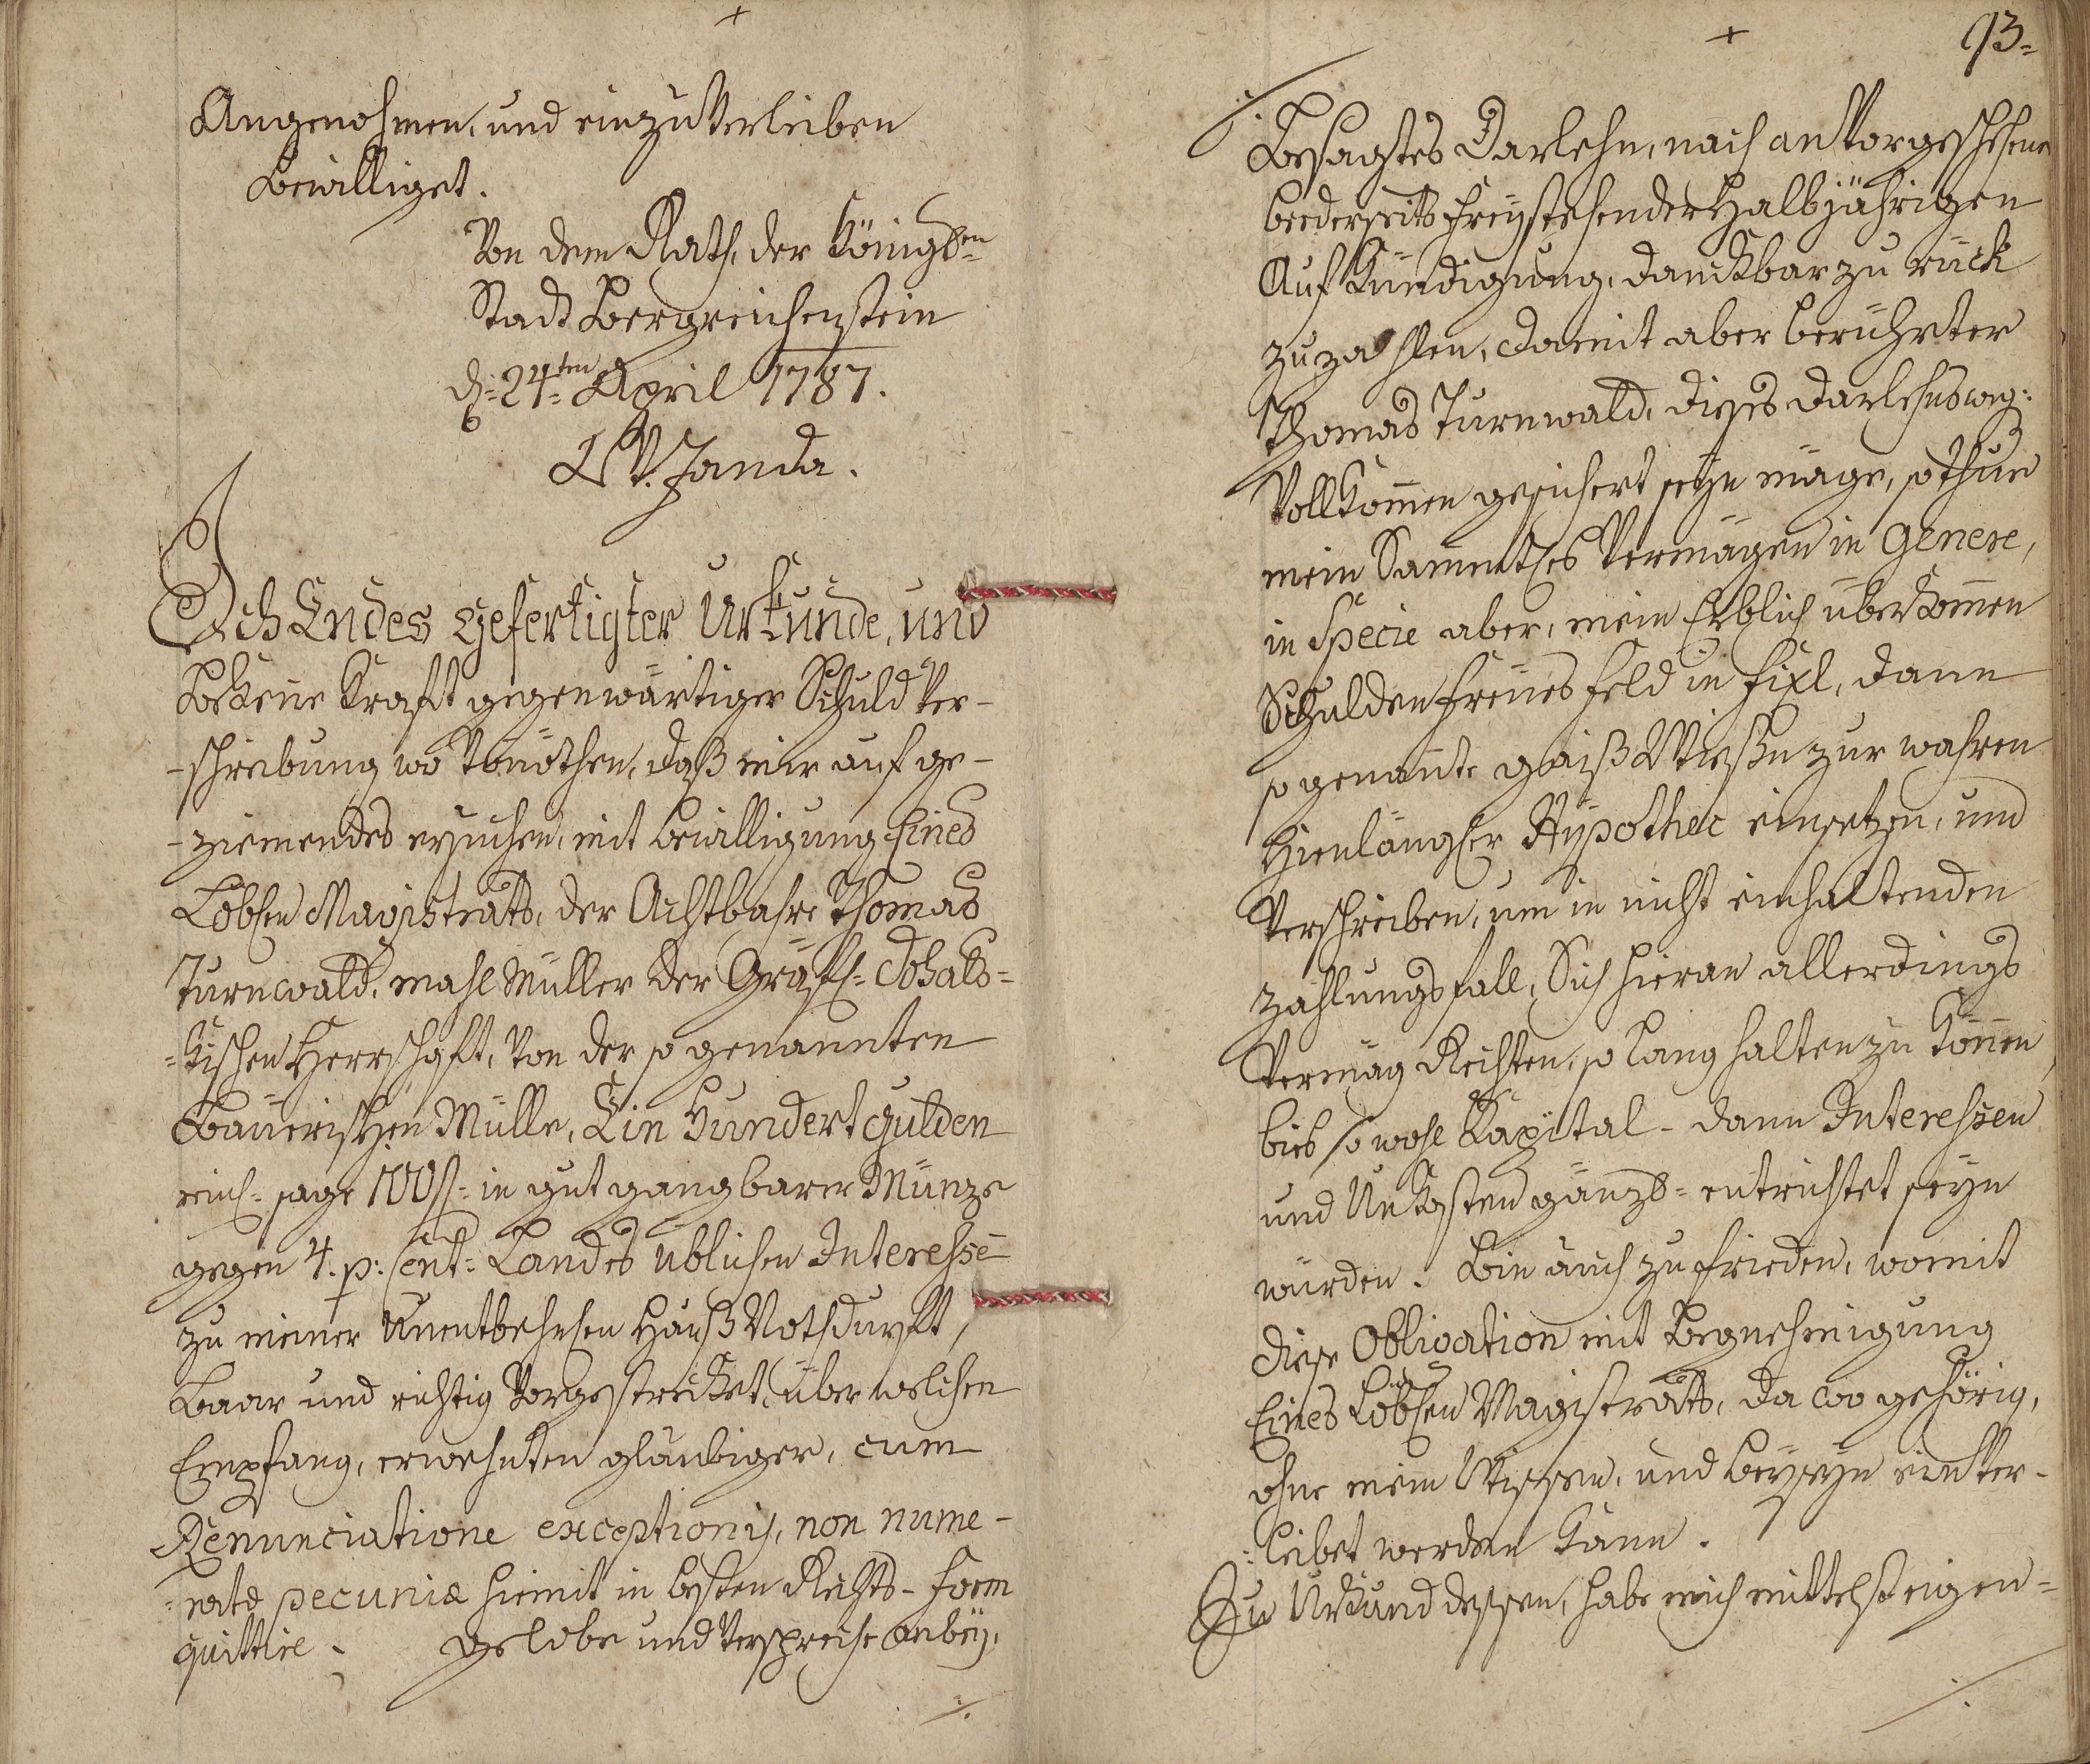 +
Angenohmen, und einzuverleiben
bewilliget.
Von dem Rath, der Königl=en
Stadt Bergreichenstein
d: 24=ten April 1787.
LV. Janda.
Ich Endes gefertigter Urkunde, und
bekene Kraft gegenwärtiger Schuld Ver-
-schreibung wo Vonöthen, daß mir auf ge-
-ziemendes ersuchen, mit bewilligung Eines
Löbhen Magistrats, der Achtbahre Thomas
Turnwald, mahl Müller der Gräfl=
=kischen Herrschaft, Von der so genannten
Baüerischen Mülle, Ein Hundert gulden
reinl= sage 100 fl= in gut gangbarer Münze
gegen 4. p: Cent: Landes üblichen Interesse
zu meiner Unentbehrhen Hauß Nothdurft,
baar und richtig Vorgestrecket, über welchen
Empfang, erwehnten gläubiger, cum
Renunciatione exceptionis, non nume-
=ratæ pecuniæ hiemit in besten Rechts-form
quittire. gelobe und Verspreche anbey,
./.
+
93=
./. besagtes Darlehn, nach an Vorgeschehene
beederseits freystehender Halbjährigen
Aufkündigung, danckbar zu rück
zu zahlen, damit aber berührter
Thomas Turnwald, dieses Darlehns weg:
Vollkomen gesichert seyn möge, so thue
mein Sammtes Vermögen in Genere,
in Specie aber, mein Erblich überkomen
Schulden freües feld in fixl, dann
so genante gaiß Wießn zur wahren
Hienlänglr Hÿpothec einsetzen, und
Verschreiben, um in nicht einhaltenden
zahlungs fall, Sich hieran allerdings
Vermög Rechten, so lang halten zu könen,
bies so wohl Kapital- dann Interessen
und Unkosten gänzl= entrichtet seyn
würden. Bin auch zu frieden, womit
diese Obligation mit Begnehmigung
Eines Löbhen Magistrats, da wo gehörig,
ohne mein Wissen, und beyseyn einVer-
=leibet werden kann.
Zu Urkund dessen, habe mich mittelst eigen=
./.